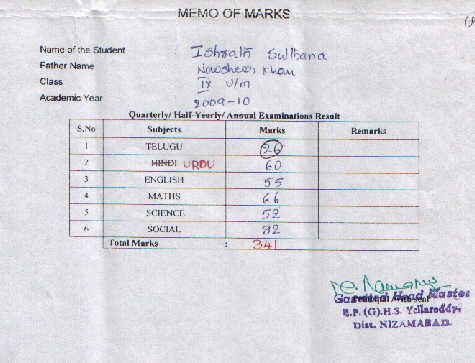 MEMO OF MARKS
Name of the Student Ishrath Sulthana
Father Name Khan
Class IX U/m
Academic Year 2009-10
Quarterly/ Half-Yearly/ Annual Examinations Result
S.No Subjects Marks Remarks
1 TELUGU 26
2 HINDI URDU 60
3 ENGLISH 55
4 MATHS 66
5 SCIENCE 52
6 SOCIAL 82
Total Marks : 341
Head Master
(G).H.S. Yellareddy,
Dist. NIZAMABAD.